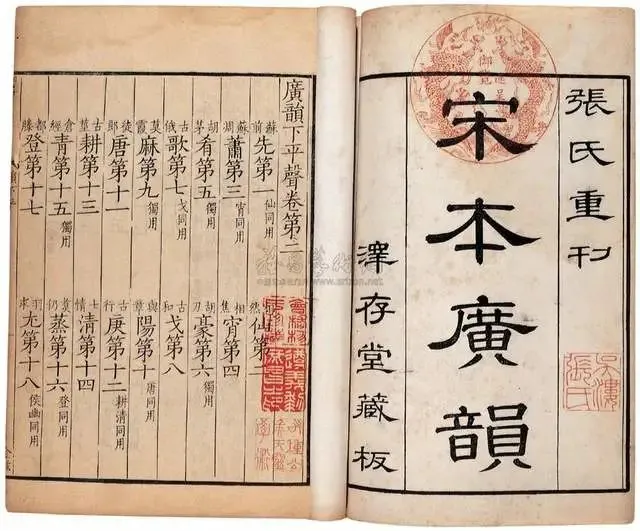 張氏重刊
宋本廣韻
澤存堂藏板
廣韻下平聲卷第二
蘇前先第一仙同用 然仙第二
蘇凋蕭第三宵同用 相焦宵第四
胡茅肴第五獨用 胡刀豪第六獨用
古俄歌第七戈同用 古和戈第八
莫霞麻第九獨用 與章陽第十唐同用
徒郎唐第十一 古行庚第十二耕清同用
古莖耕第十三 情清第十四
倉經青第十五獨用 煑仍蒸第十六登同用
都滕登第十七 羽求尤第十八侯幽同用